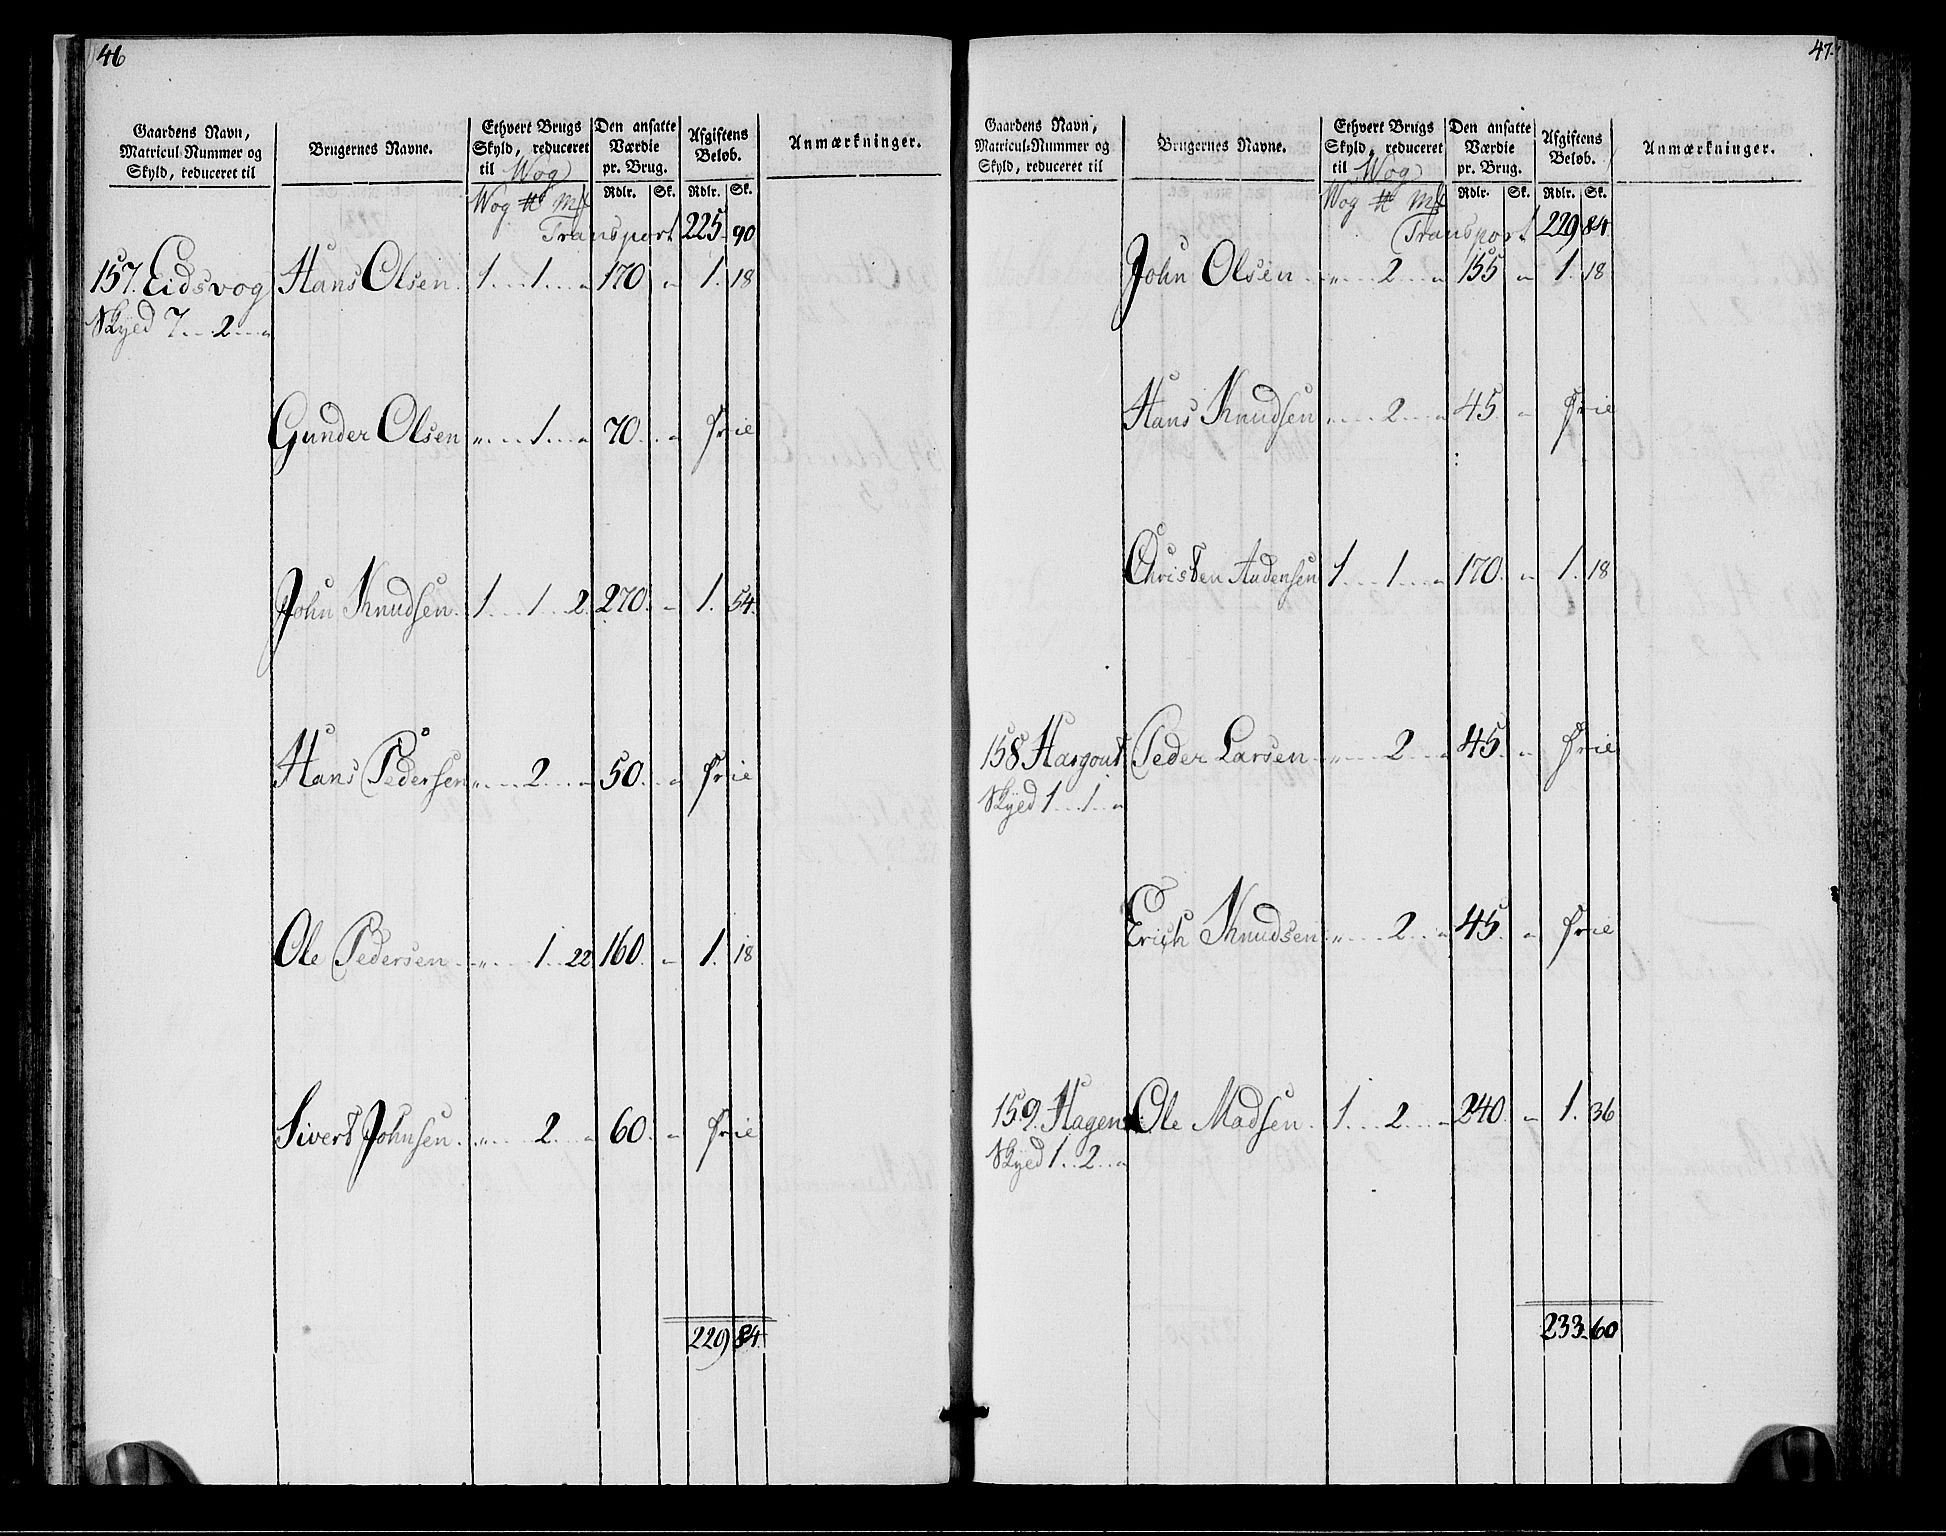 46
Gaardens Navn, Matricul-Nummer og Skyld, reduceret til
Brugernes Navne.
Ethvert Brugs Skyld, reduceret til Wog
Den ansatte Værdie pr. Brug.
Afgiftens Beløb.
Anmærkninger.
Wog ℔ Mk Rdlr. Sk. Rdlr. Sk.
Transport 225. 90
157. Eidsvog Hans Olsen. 1....1...„ 170 „ 1. 18
Skyed 7...2...„
Gunder Olsen „....1...„ 70...„ Frie
John Knudsen. 1....1..2. 270. „ 1. 54.
Hans Pedersen „....2...„ 50...„ Frie
Ole Pedersen „....1..22 160. „ 1. 18
Sivert Johnsen. „....2...„ 60. „ Frie
229 84.
47.
Gaardens Navn, Matricul-Nummer og Skyld, reduceret til
Brugernes Navne.
Ethvert Brugs Skyld, reduceret til Wog
Den ansatte Værdie pr. Brug.
Afgiftens Beløb.
Anmærkninger.
Wog ℔ Mk Rdlr. Sk. Rdlr. Sk.
Transport 229 84.
John Olsen. „...2...„ 155 „ 1. 18
Hans Knudsen „....2...„ 45. „ Frie
Christen Audensen 1....1...„ 170. „ 1. 18
158 Hargout Peder Larsen „....2...„ 45. „ Frie
Skyed 1...1...„
Erich Knudsen „....2...„ 45. „ Frie
159. Hagen Ole Madsen. 1....2...„ 240 „ 1. 36
Skyed 1...2...„
233. 60